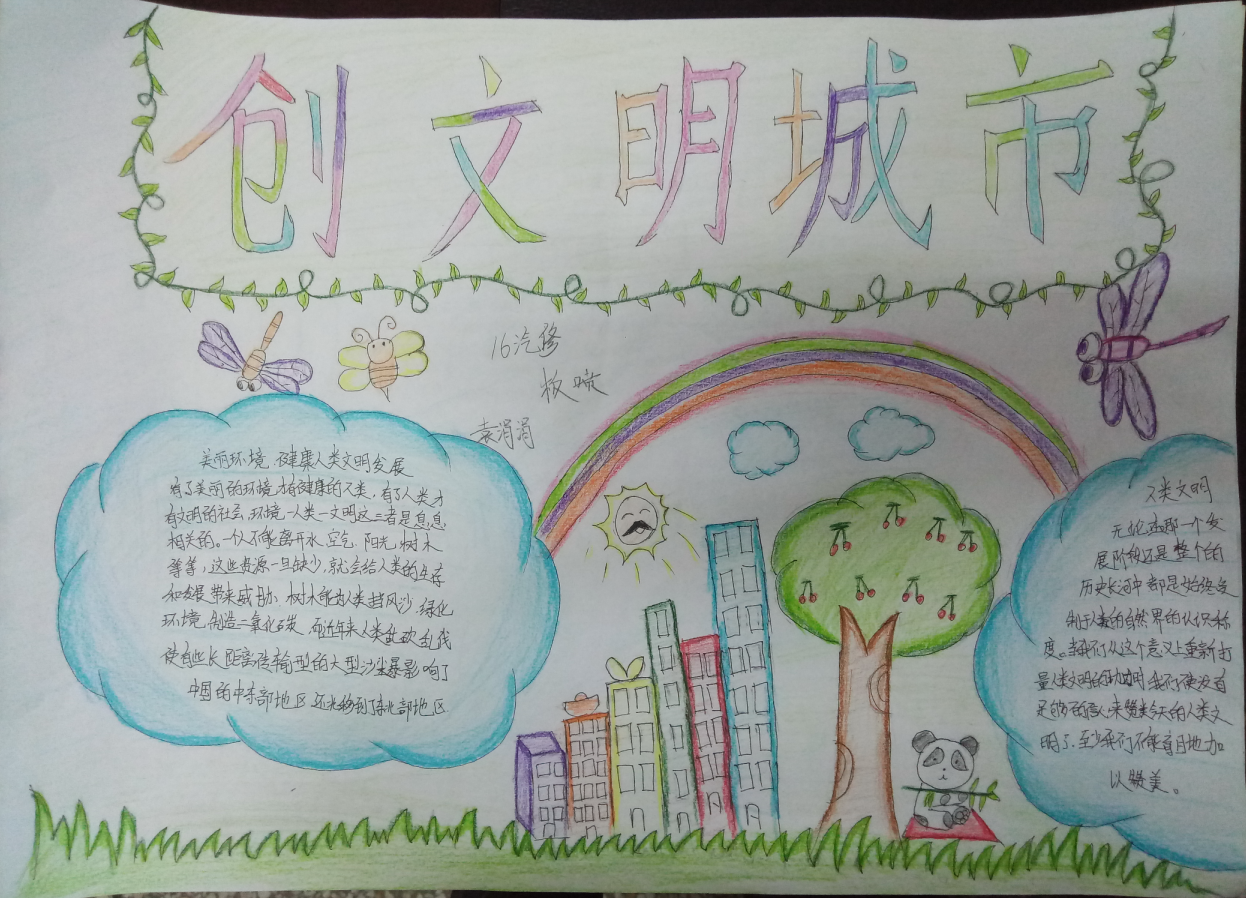 创文明城市
16汽修
板喷
袁涓涓
美丽环境,健康人类文明发展
有了美丽的环境才有健康的人类,有了人类才
有文明的社会,环境一人类一文明这三者是息息
相关的。一个人不能离开水、空气、阳光、树木
等等,这些资源一旦缺少,就会给人类的生存
和发展带来威胁、树木能为人类挡风沙、绿化
环境,制造二氧化碳、而近年来人类乱砍乱伐
使有些长距离传输型的大型沙尘暴影响了
中国的中东部地区还光移到了东北部地区
人类文明
无论在哪一个发
展阶段还是整个的
历史长河中都是始终受
制于人类的自然界的认识称
度。当我们从这个意义上重新打
量人类文明的时,我们便没有
足够的信心来赞美今天的人类文
明了、至少我们不能盲目地加
以赞美。